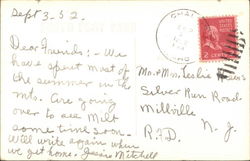 Sept 3-52.
Dear Friends:- We
have spent most of
the summer in the
mts. Are going
over to see Milt
some time soon.-
Will write again when
we get home. Jessie Mitchell
Mr. & Mrs. Leslie
Silver Run Road
Millville
R.F.D. N. J.
2 CENTS